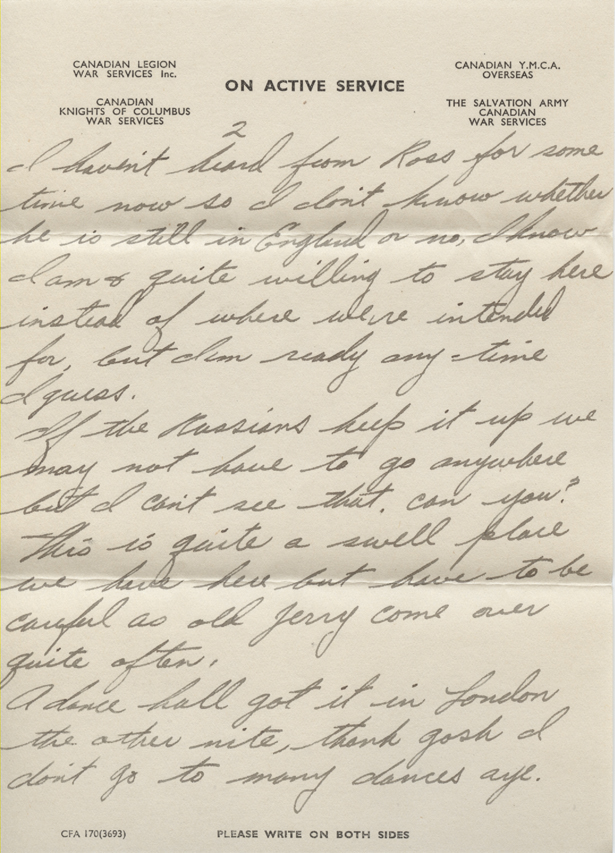 CANADIAN LEGION
WAR SERVICES Inc.
CANADIAN
KNIGHTS OF COLUMBUS
WAR SERVICES
ON ACTIVE SERVICE
CANADIAN Y.M.C.A.
OVERSEAS
THE SALVATION ARMY
CANADIAN
WAR SERVICES
2
I haven't heard from Ross for some
time now so I don't know whether
he is still in England or no, I know
I am quite willing to stay here
instead of where we're intended
for, but I'm ready any-time
I guess.
If the Russians keep it up we
may not have to go anywhere
but I can't see that, can you?
This is quite a swell place
we have here but have to be
careful as old Jerry come over
quite often.
A dance hall got it in London
the other nite, thank gosh I
don't go to many dances aye.
CFA 170(3693)
PLEASE WRITE ON BOTH SIDES